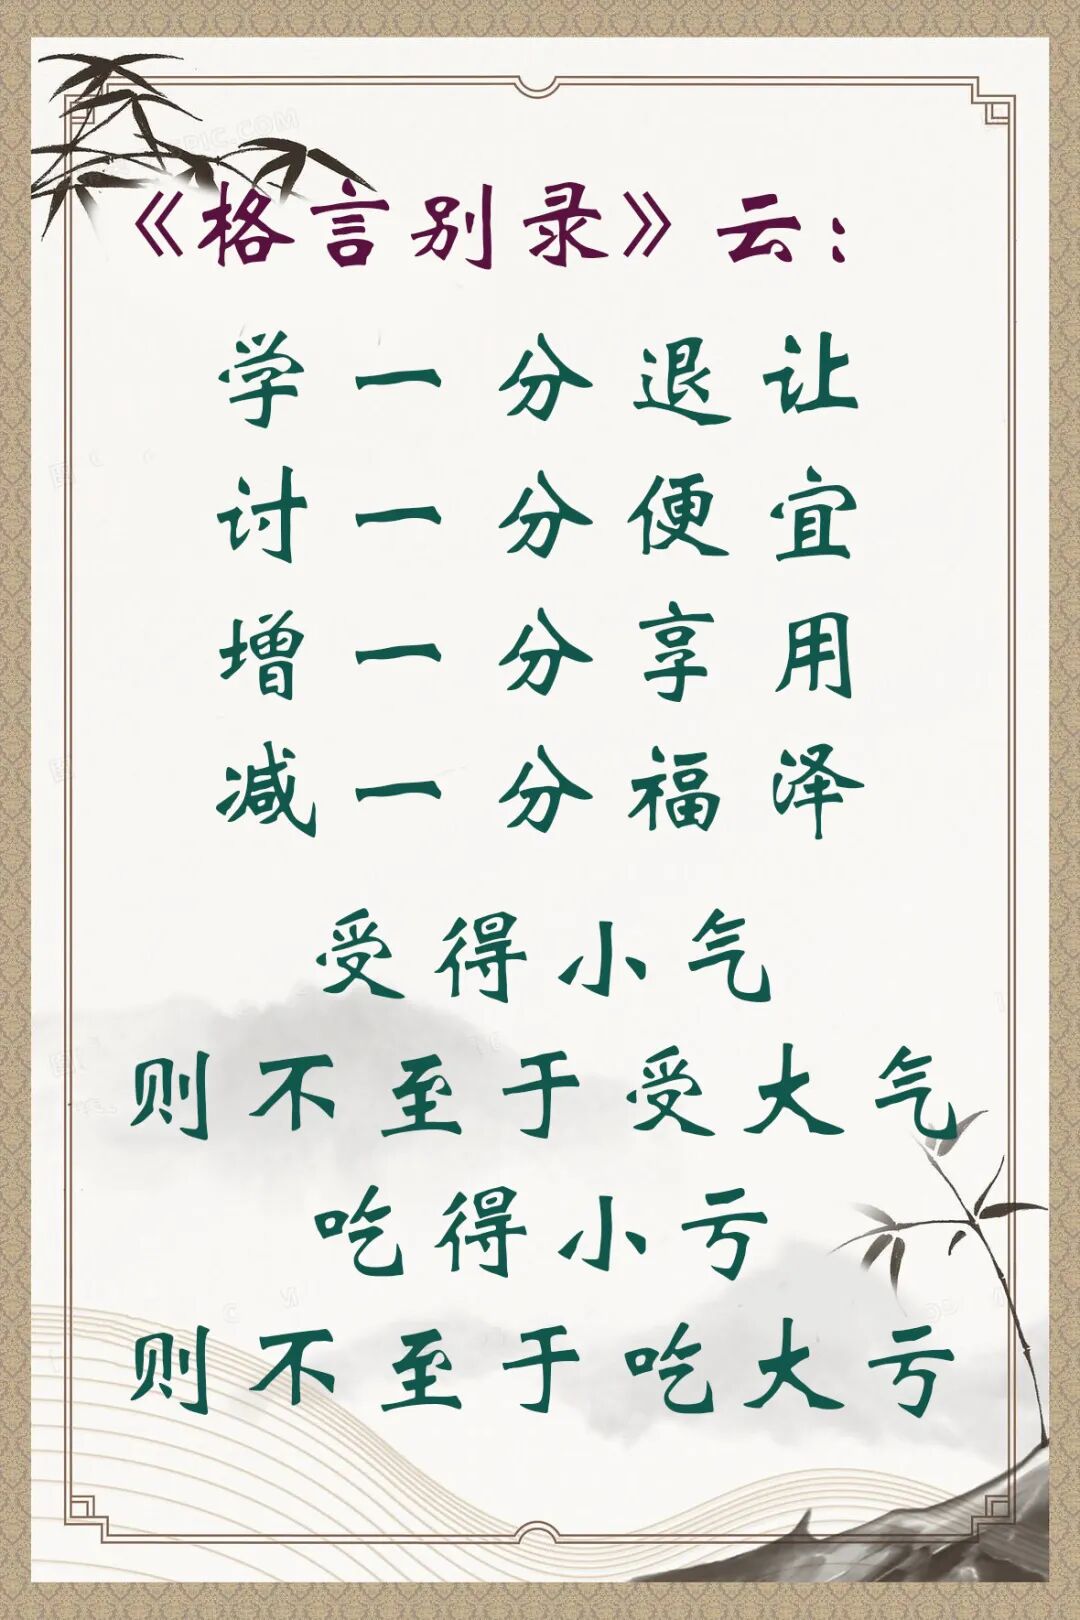 《格言别录》云：
学一分退让
讨一分便宜
增一分享用
减一分福泽
受得小气
则不至于受大气
吃得小亏
则不至于吃大亏